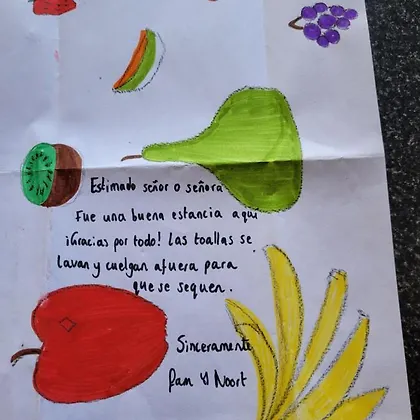 Estimado señor o señora
Fue una buena estancia aquí
¡Gracias por todo! Las toallas se
lavan y cuelgan afuera para
que se sequen.
Sinceramente
Pam y Noort